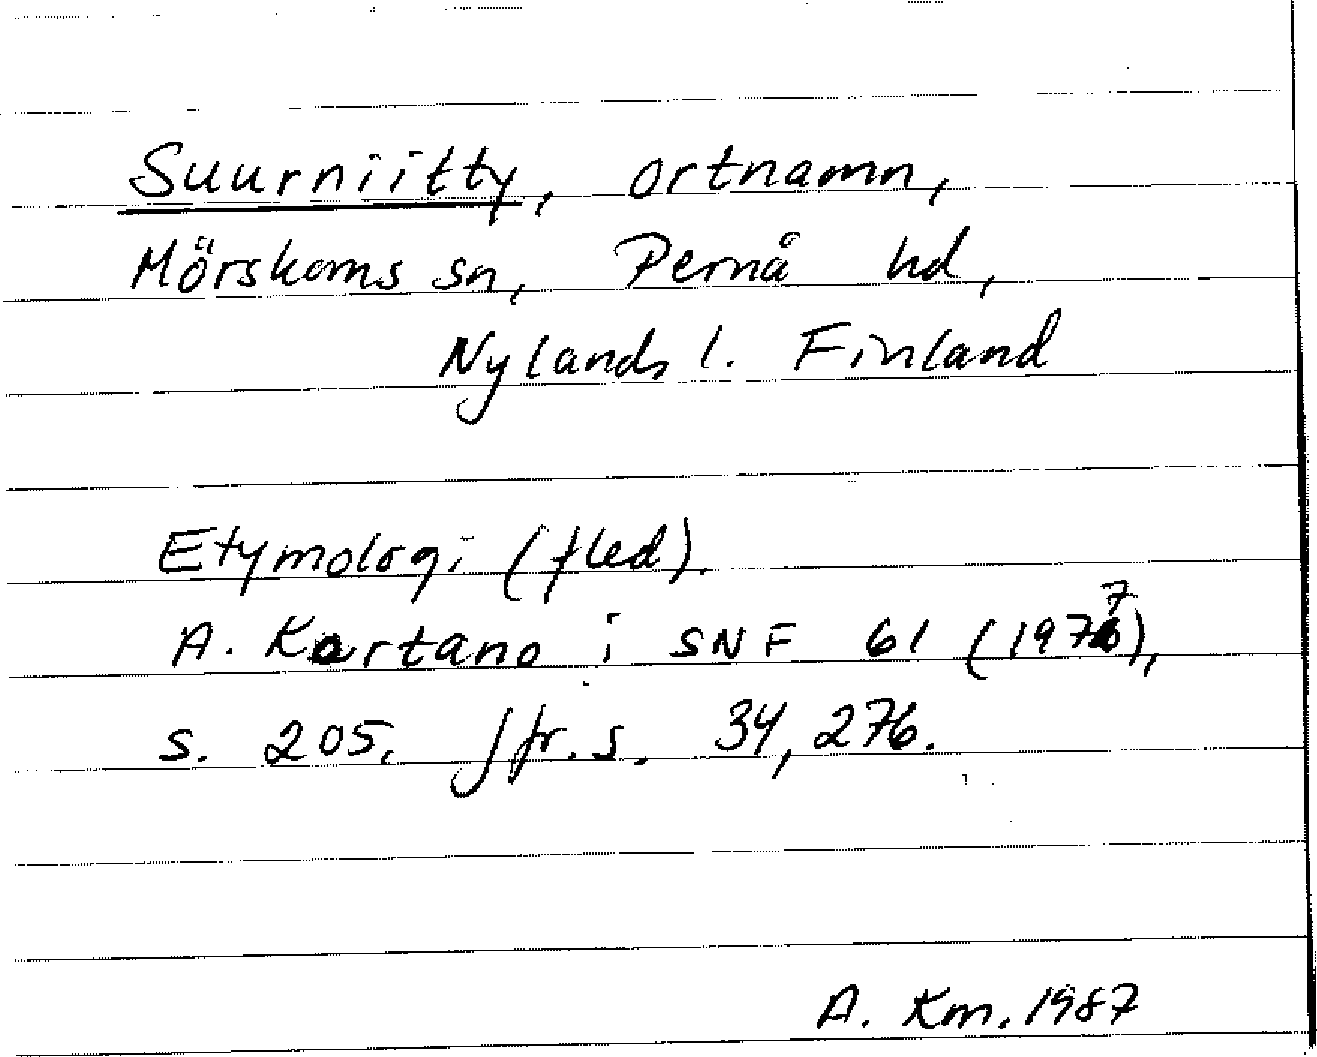 Suurniitty, ortnamn,
Mörskoms sn, Pernå hd,
Nylands l. Finland
Etymologi (fled).
A. Kartano i SNF 61 (1977),
s. 205. Jfr. s. 34, 276.
A. Km. 1987